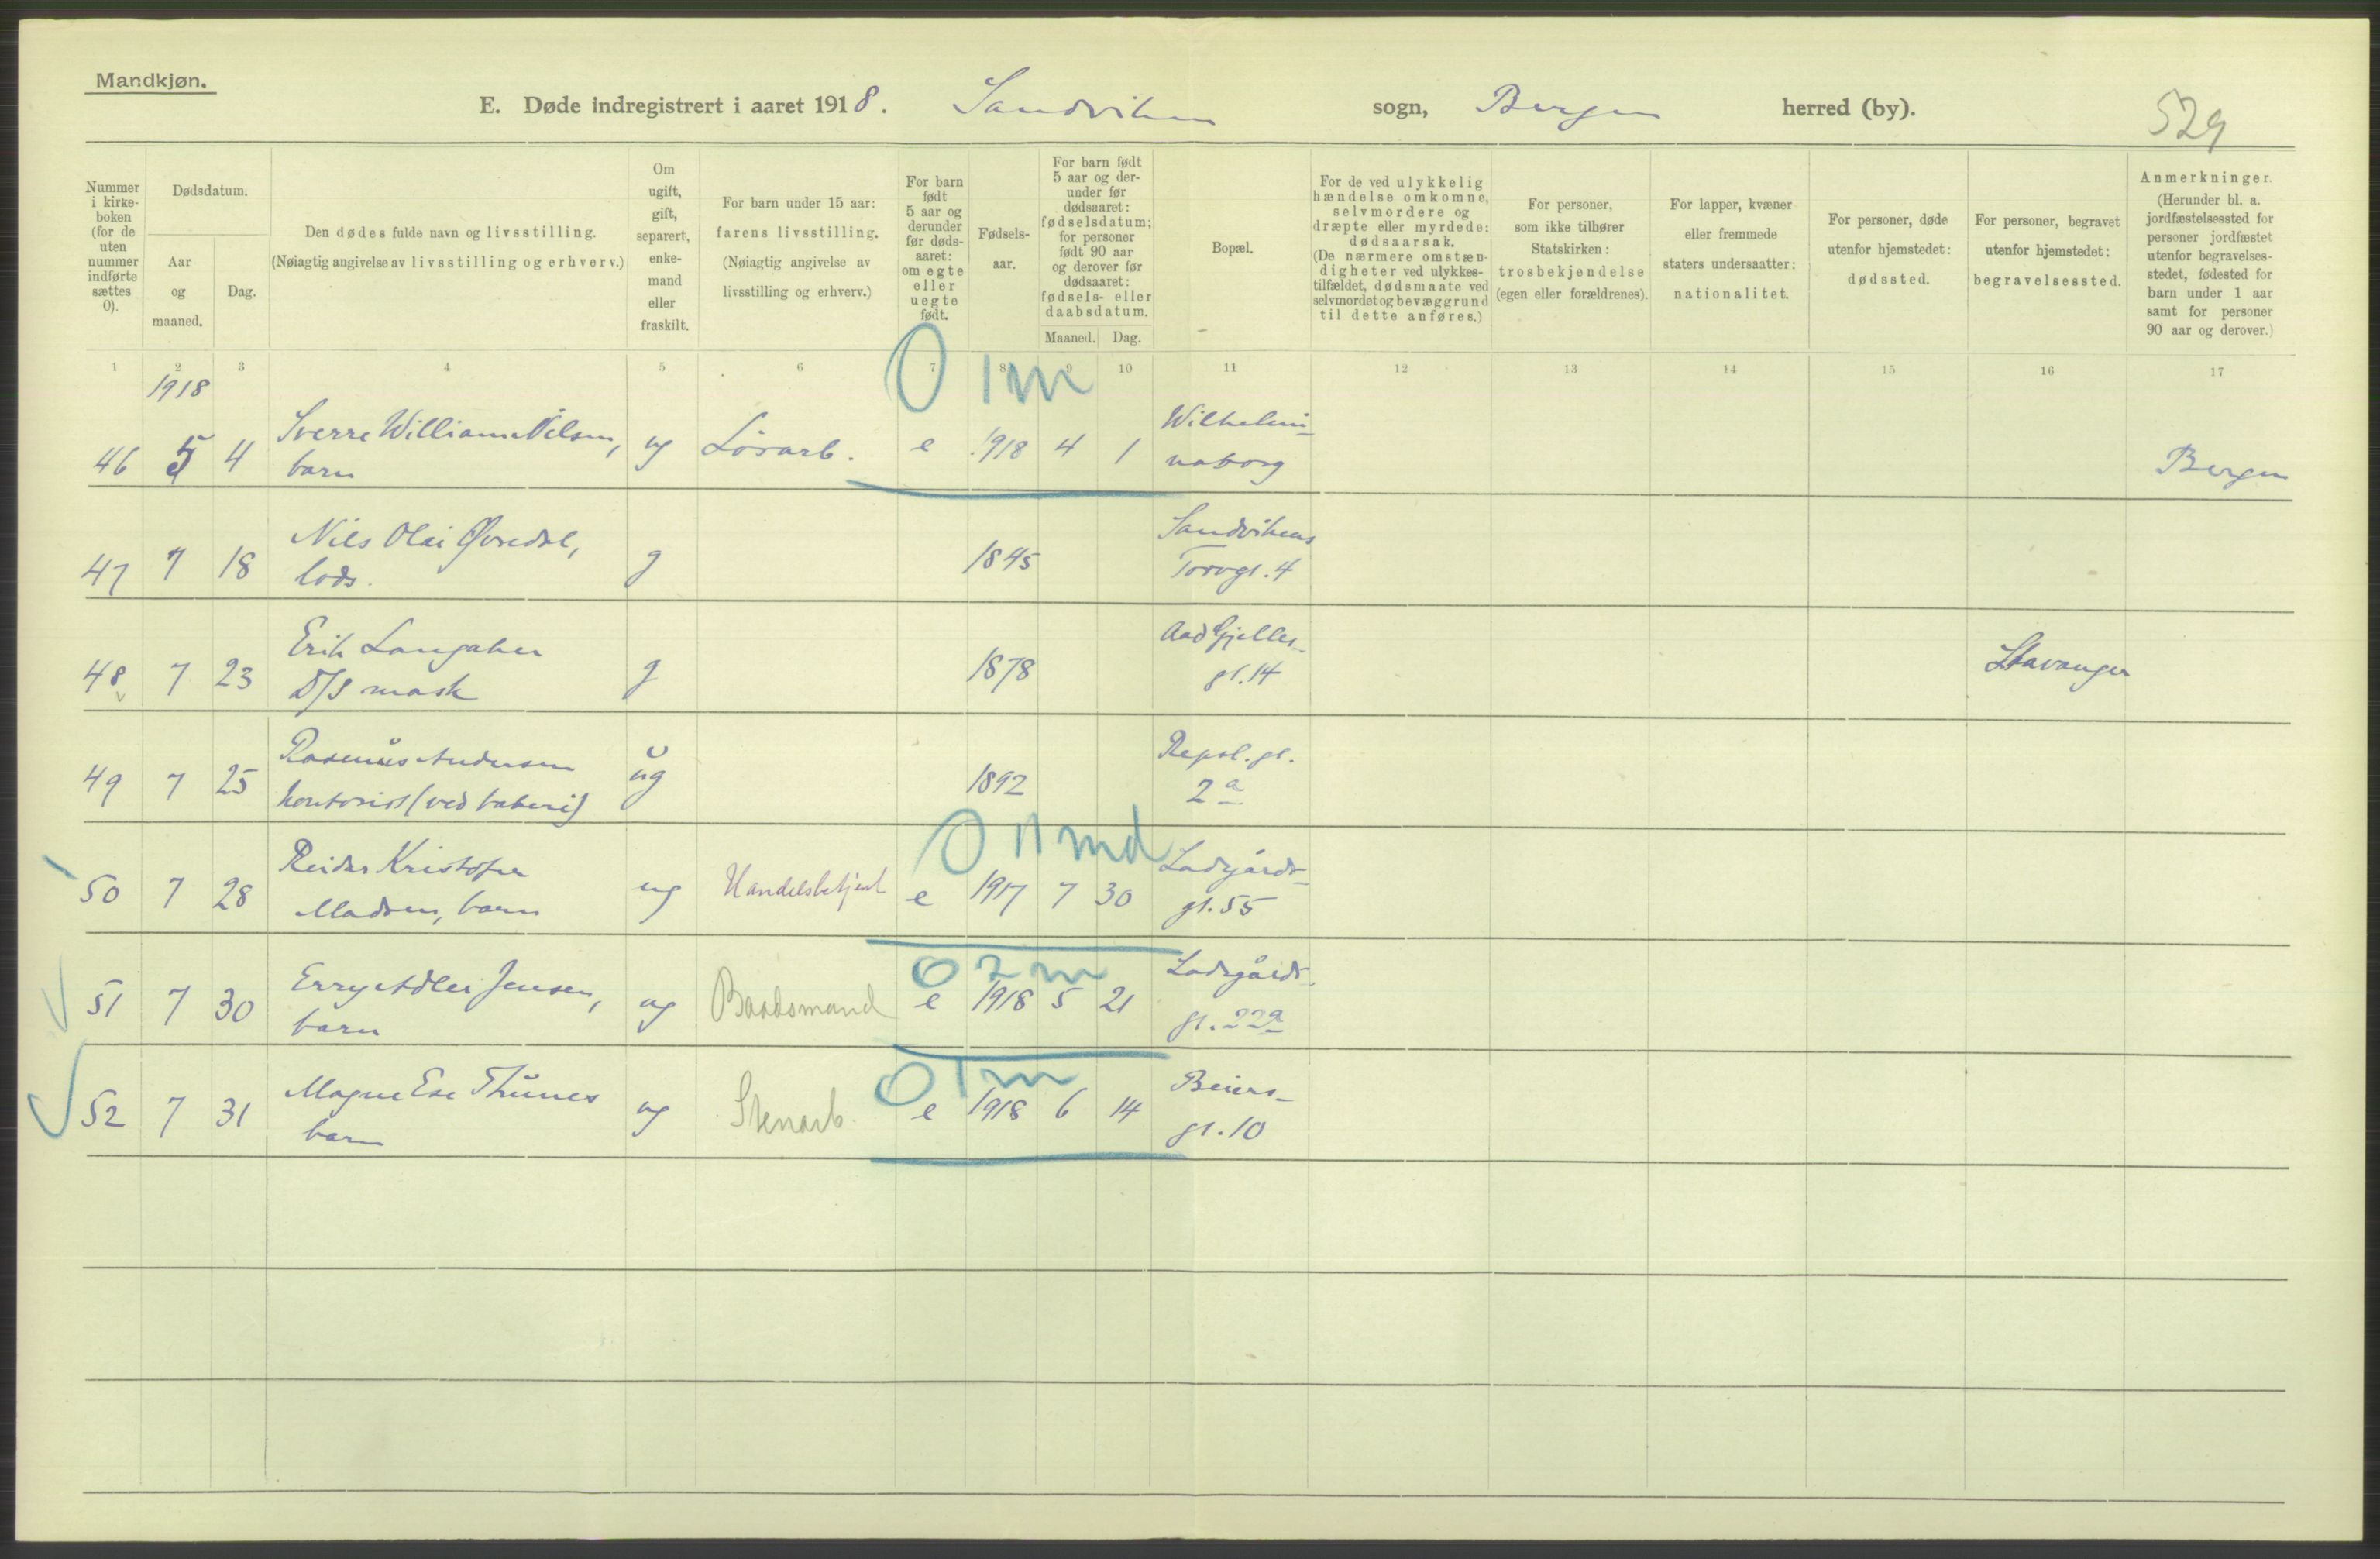 Mandkjøn.
E. Døde indregistrert i aaret 1918. Sandviken sogn, Bergen herred (by). 529
Nummer i kirke- boken (for de uten nummer indførte sættes 0).
Dødsdatum.
Aar og maaned.
Dag.
Den dødes fulde navn og livsstilling.
(Nøiagtig angivelse av livsstilling og erhverv.)
Om ugift, gift, separert, enke- mand eller fraskilt.
For barn under 15 aar: farens livsstilling. (Nøiagtig angivelse av livsstilling og erhverv.)
For barn født 5 aar og derunder før døds- aaret: om egte eller uegte født.
Fødsels- aar.
For barn født 5 aar og der- under før dødsaaret: fødselsdatum; for personer født 90 aar og derover før dødsaaret: fødsels- eller daabsdatum.
Maaned. Dag.
Bopæl.
For de ved ulykkelig hændelse omkomne, selvmordere og dræpte eller myrdede: dødsaarsak. (De nærmere omstæn- digheter ved ulykkes- tilfældet, dødsmaate ved selvmordet og bevæggrund til dette anføres.)
For personer, som ikke tilhører Statskirken: trosbekjendelse (egen eller forældrenes).
For lapper, kvæner eller fremmede staters undersaatter: nationalitet.
For personer, døde utenfor hjemstedet: dødssted.
For personer, begravet utenfor hjemstedet: begravelsessted.
Anmerkninger. (Herunder bl. a. jordfæstelsessted for personer jordfæstet utenfor begravelses- stedet, fødested for barn under 1 aar samt for personer 90 aar og derover.)
1 2 3 4 5 6 7 8 9 10 11 12 13 14 15 16 17
1918
0 1 m
46 5 4 Sverre William Nilsen, barn ug Løsarb. e 1918 4 1 Wilhelmi- naborg Bergen
47 7 18 Nils Olai Øvredal, lods. g 1845 Sandvikens Torvgt. 4
48 7 23 Erik Langaker D/S mask g 1878 Aad Gjelles- gt. 14 Stavanger
49 7 25 Rasmus Andersen kontorist (ved bakeri) ug 1892 Repsl. gt. 2a
0 11 md
50 7 28 Reidar Kristofer Madsen, barn ug Handelsbetjent e 1917 7 30 Ladegårds- gt. 55
0 2 m
51 7 30 Erry Adler Jensen, barn ug Baadsmand e 1918 5 21 Ladegårds- gt. 22a
0 1 m
52 7 31 Magne Ese Thunes barn ug Stenarb. e 1918 6 14 Beiers- gt. 10